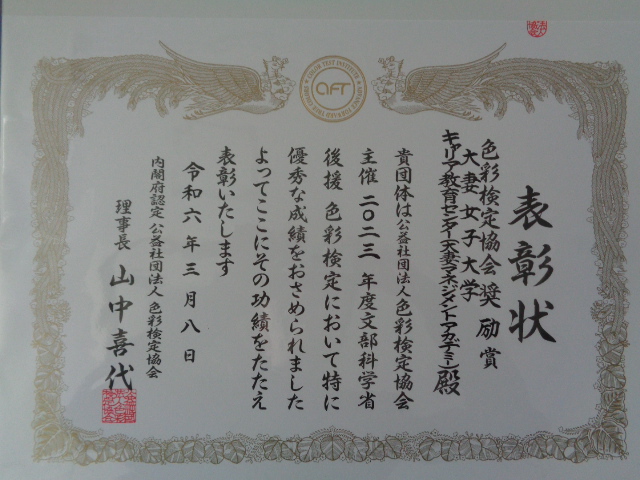 表彰状
色彩検定協会奨励賞
大妻女子大学
キャリア教育センター(大妻マネジメントアカデミー)殿
貴団体は公益社団法人色彩検定協会
主催 二〇二三 年度文部科学省
後援 色彩検定において特に
優秀な成績をおさめられました
よってここにその功績をたたえ
表彰いたします
令和六年三月八日
内閣府認定 公益社団法人 色彩検定協会
理事長 山中喜代
AFT